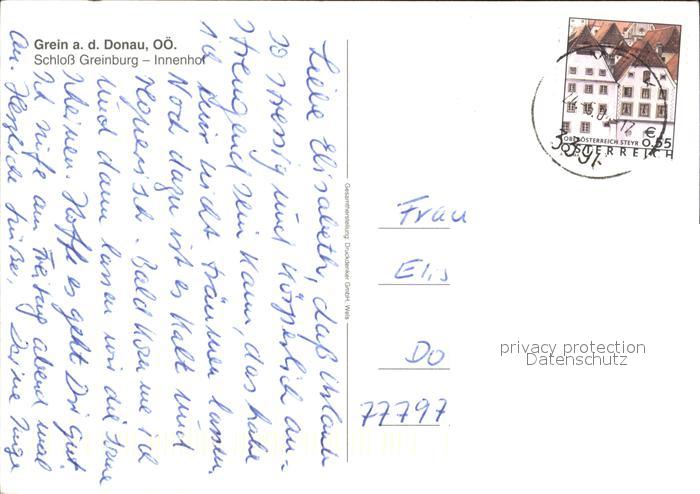 Grein a. d. Donau, OÖ.
Schloß Greinburg – Innenhof
Liebe Elisabeth, daß Urlaub
so stressig und körperlich an-
strengend sein kann, das habe
ich mir nicht träumen lassen.
Noch dazu ist es kalt und
regnerisch. Bald komme ich
und dann lassen wir die Sonne
scheinen. Hoffe es geht Dir gut.
Ich rufe am Freitag abend mal
an. Herzliche Grüße, Deine Inge
Gesamtherstellung: Druckdenker GmbH, Wels
OBERÖSTERREICH STEYR
€ 0,55
ÖSTERREICH
Frau
Elis
Do
77797
privacy protection
Datenschutz